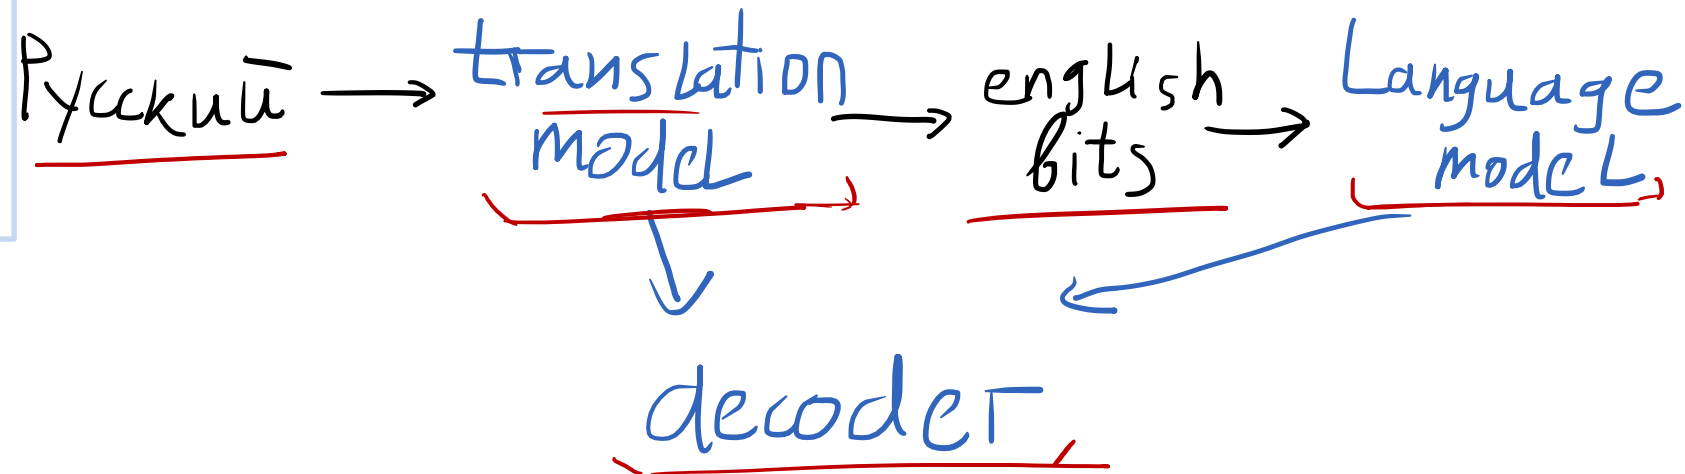 Русский → translation model → english bits → Language model
decoder